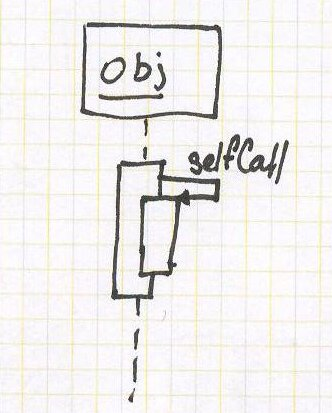 Obj
selfCall